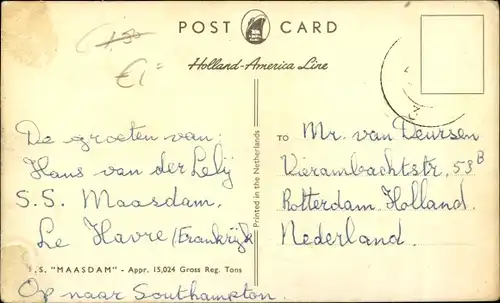 POST CARD
Holland-America Line
1.50
€1=
De groeten van:
Hans van der Lely
S.S. Maasdam.
Le Havre/Frankrijk
S.S. "MAASDAM" - Appr. 15,024 Gross Reg. Tons
Op naar Southampton.
Printed in the Netherlands
TO
Mr. van Deursen
Vierambachtstr. 53B
Rotterdam Holland.
Nederland.